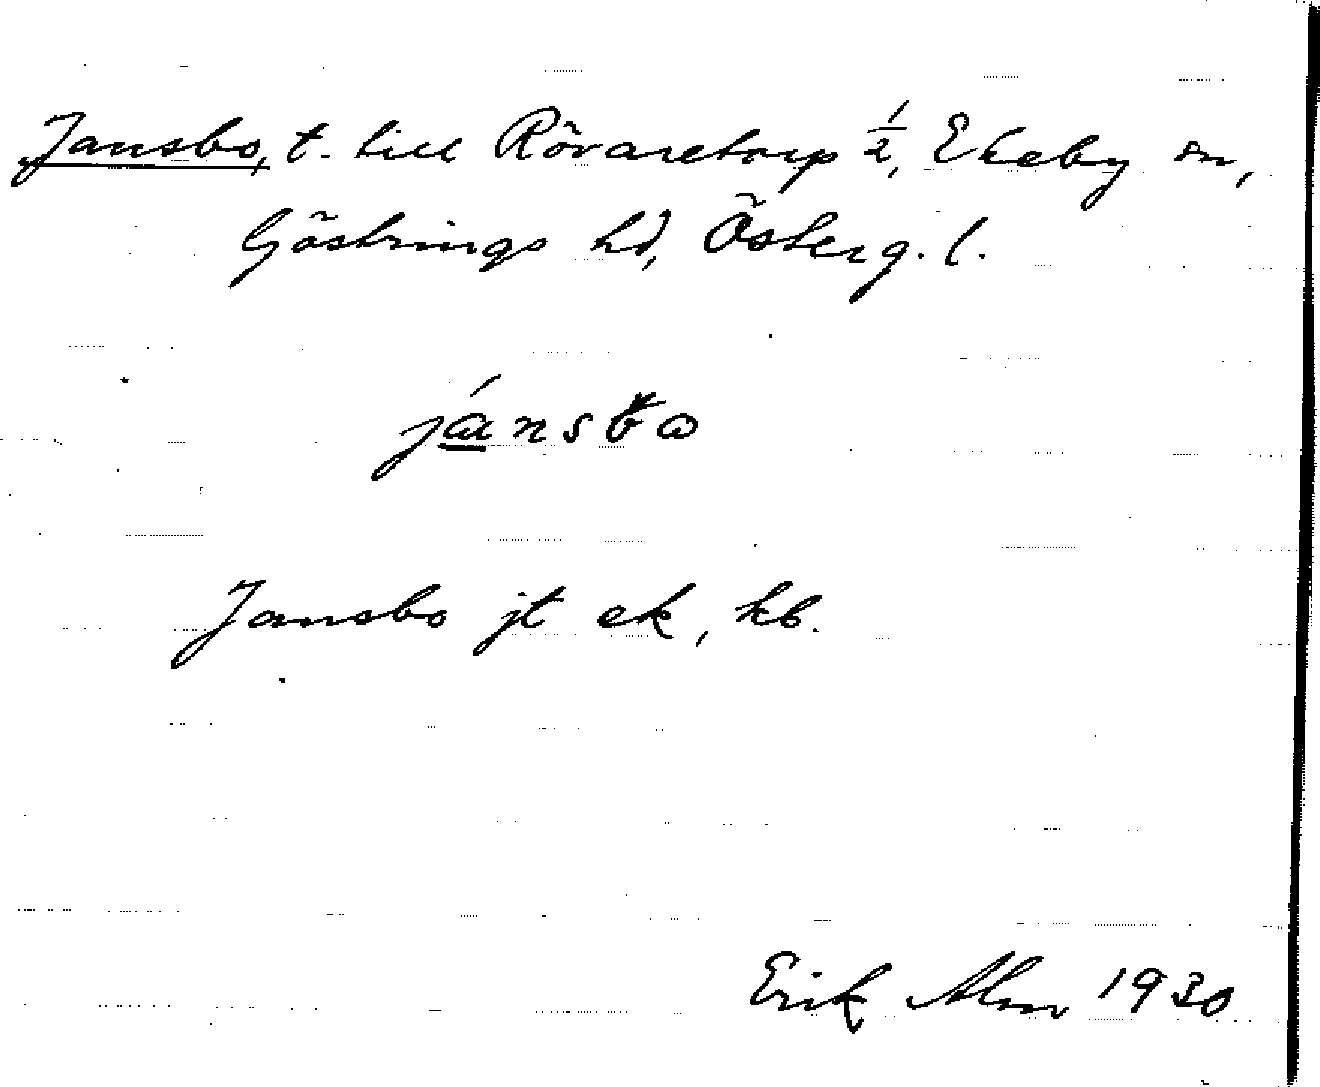 Jansbo, t. till Rövaretorp 1/2, Ekeby sn,
Göstrings hd, Österg. l.
jánsbω
Jansbo jt ek, kb.
Erik Alm 1930